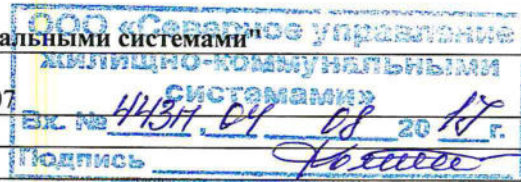 альными системами"
ООО «Северное управление
жилищно-коммунальными
системами»
07
Вх. № 443П, 04 08 2017 г.
Подпись